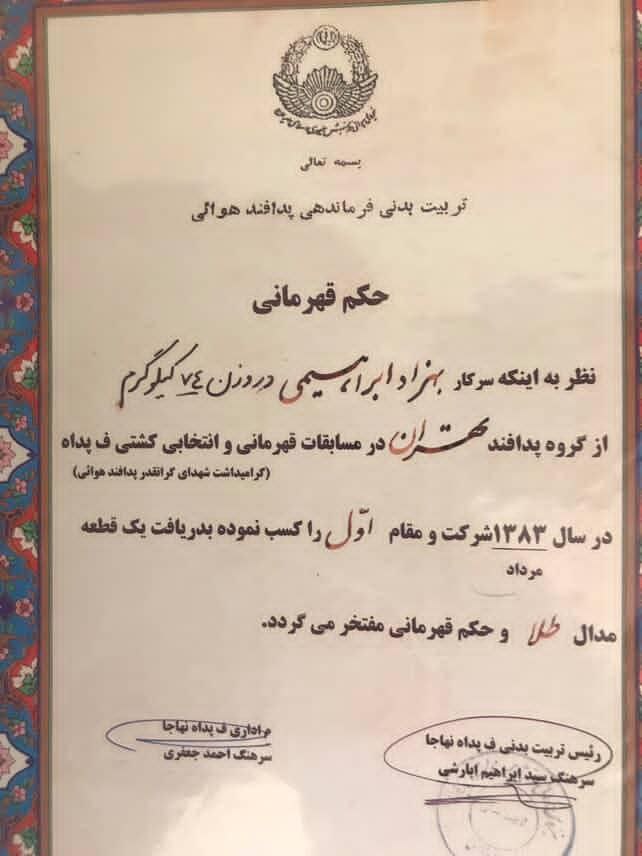 بسمه تعالی
تربیت بدنی فرماندهی پدافند هوائی
حکم قهرمانی
نظر به اینکه سرکار بهزاد ابراهیمی در وزن ۷۴ کیلوگرم
از گروه پدافند تهران در مسابقات قهرمانی و انتخابی کشتی ف پداه
(گرامیداشت شهدای گرانقدر پدافند هوائی)
در سال ۱۳۸۳ شرکت و مقام اوّل را کسب نموده بدریافت یک قطعه
مرداد
مدال طلا و حکم قهرمانی مفتخر می گردد.
رئیس تربیت بدنی ف پداه نهاجا
سرهنگ سید ابراهیم ابارشی
م اداری ف پداه نهاجا
سرهنگ احمد جعفری